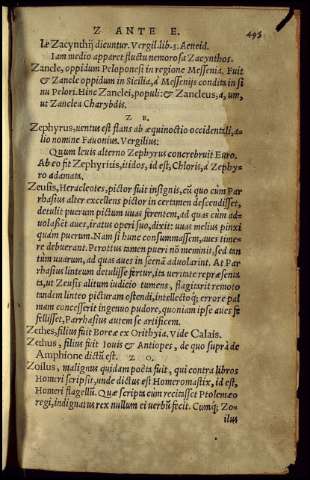 Z ANTE E. 495
Le Zacynthij dicuntur. Vergil. lib. 3. Aeneid.
Iam medio apparet fluctu nemorosa Zacynthos.
Zancle, oppidum Peloponesi in regione Messenia. Fuit
& Zancle oppidum in Sicilia, à Messenijs condita in si
nu Pelori. Hinc Zanclei, populi: & Zancleus, a, um,
ut Zanclea Charybdis.
Z E.
Zephyrus, uentus est flans ab æquinoctio occidentali, a-
lio nomine Fauonius. Vergilius:
Quum leuis alterno Zephyrus concrebruit Euro.
Ab eo fit Zephyritis, itidos, id est, Chloris, à Zephy-
ro adamata.
Zeusis, Heracleotes, pictor fuit insignis, eũ quo cùm Par
rhasius alter excellens pictor in certamen descendisset,
detulit puerum pictum uuas ferentem, ad quas cùm ad-
uolassët aues, iratus operi suo, dixit: uuas melius pinxi
quàm puerum. Nam si hunc consummassem, aues time-
re debuerant. Perottus tamen pueri nõ meminit, sed tan
tùm uuarum, ad quas aues in scenã aduolarint. At Par
rhasius linteum detulisse fertur, ita ueritate repræsenta
ta, ut Zeusis alitum iudicio tumens, flagitarit remoto
tandem linteo picturam ostendi, intellectoq́; errore pal
mam concesserit ingenuo pudore, quoniam ipse aues fe
fellisset, Parrhasius autem se artificem.
Zethes, filius fuit Boreæ ex Orithyia. Vide Calais.
Zethus, filius fuit Iouis & Antiopes, de quo suprà de
Amphione dictũ est. Z O.
Zoilus, malignus quidam poëta fuit, qui contra libros
Homeri scripsit, unde dictus est Homeromastix, id est,
Homeri flagellũ. Quæ scripta cùm recitasset Ptolemæo
regi, indignatus rex nullum ei uerbũ fecit. Cumq́; Zo-
ilus